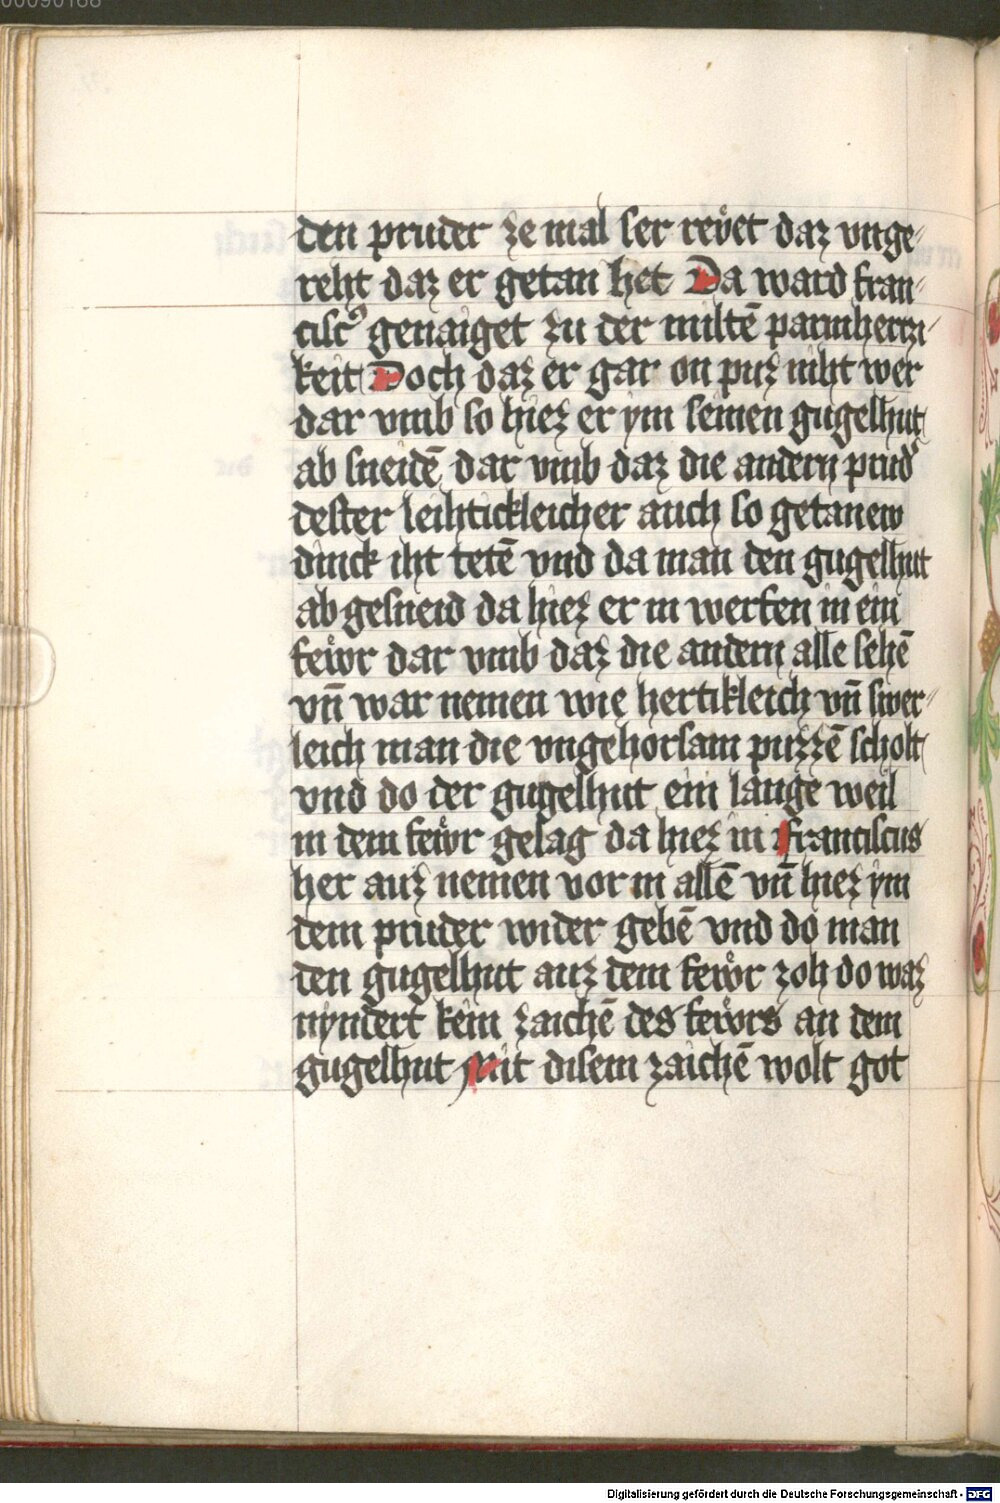 00090168
den pruder ze mal ser reẅet daz vnge⸗
reht daz er getan het Da ward fran⸗
ciscꝰ genaiget zu der miltē parmhertzi⸗
keit Doch daz er gar on puz niht wer
dar vmb so hiez er ym seinen gugelhut
ab sneidē dar vmb daz die andern prud̉
dester leihtickleicher auch so getanew
dinck iht tetē vnd da man den gugelhut
ab gesneid da hiez er in werfen in ein
fewr dar vmb daz die andern alle sehē
vn̄ war nemen wie hertikleich vn̄ swer⸗
leich man die vngehorsam puzzē scholt
vnd do der gugelhut ein lange weil
in dem fewr gelag da hiez in Franciscus
her auz nemen vor in allē vn̄ hiez ym
dem pruder wider gebē vnd do man
den gugelhut auz dem fewr zoh do waz
nyndert kein zaichē des fewrs an dem
gugelhut Mit disem zaichē wolt got
Digitalisierung gefördert durch die Deutsche Forschungsgemeinschaft - DFG